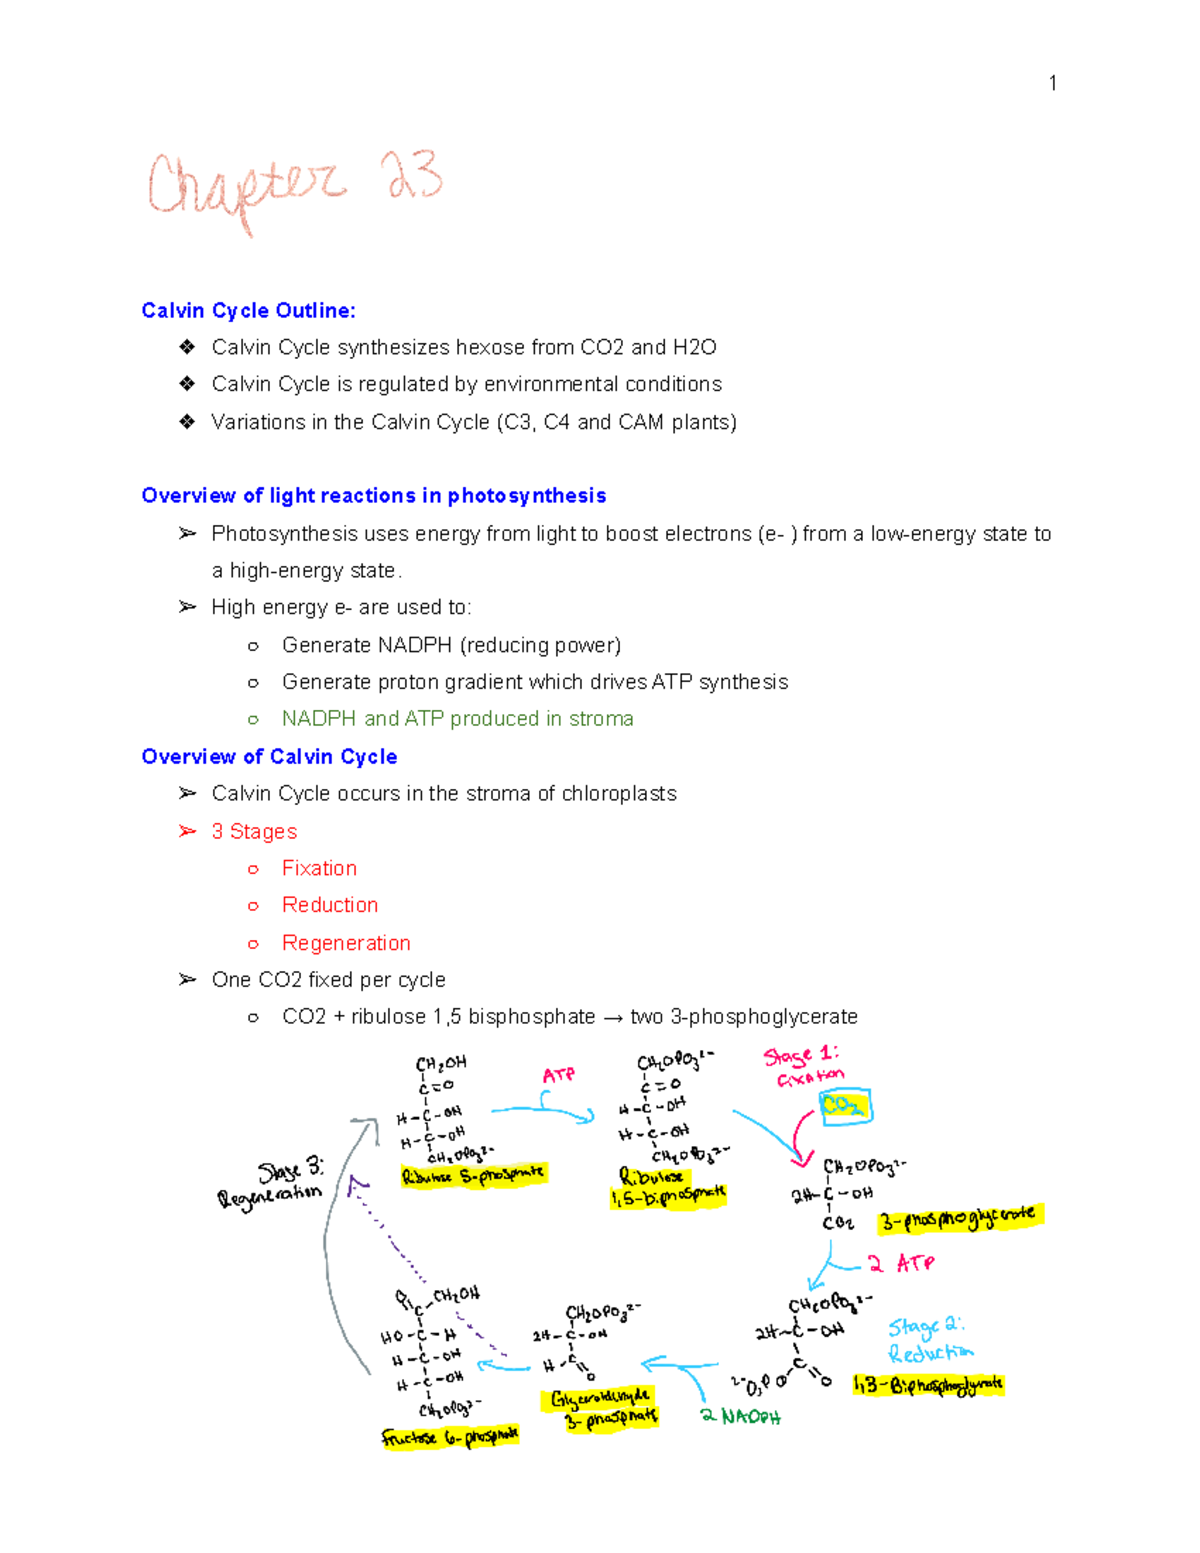 1
Chapter 23
Calvin Cycle Outline:
❖ Calvin Cycle synthesizes hexose from CO2 and H2O
❖ Calvin Cycle is regulated by environmental conditions
❖ Variations in the Calvin Cycle (C3, C4 and CAM plants)
Overview of light reactions in photosynthesis
➢ Photosynthesis uses energy from light to boost electrons (e- ) from a low-energy state to
a high-energy state.
➢ High energy e- are used to:
○ Generate NADPH (reducing power)
○ Generate proton gradient which drives ATP synthesis
○ NADPH and ATP produced in stroma
Overview of Calvin Cycle
➢ Calvin Cycle occurs in the stroma of chloroplasts
➢ 3 Stages
○ Fixation
○ Reduction
○ Regeneration
➢ One CO2 fixed per cycle
○ CO2 + ribulose 1,5 bisphosphate → two 3-phosphoglycerate
CH₂OH
C=O
H-C-OH
H-C-OH
CH₂OPO₃²⁻
Ribulose 5-phosphate
ATP
CH₂OPO₃²⁻
C=O
H-C-OH
H-C-OH
CH₂OPO₃²⁻
Ribulose
1,5-biphosphate
Stage 1:
Fixation
CO₂
CH₂OPO₃²⁻
2H-C-OH
CO₂
3-phosphoglycerate
2 ATP
Stage 3:
Regeneration
O
C
CH₂OH
HO-C-H
H-C-OH
H-C-OH
CH₂OPO₃²⁻
fructose 6-phosphate
CH₂OPO₃²⁻
2H-C-OH
H-C
O
Glyceraldehyde
3-phosphate
2 NADPH
CH₂OPO₃²⁻
2H-C-OH
C
²⁻O₃P O
O
Stage 2:
Reduction
1,3-Biphosphoglycerate